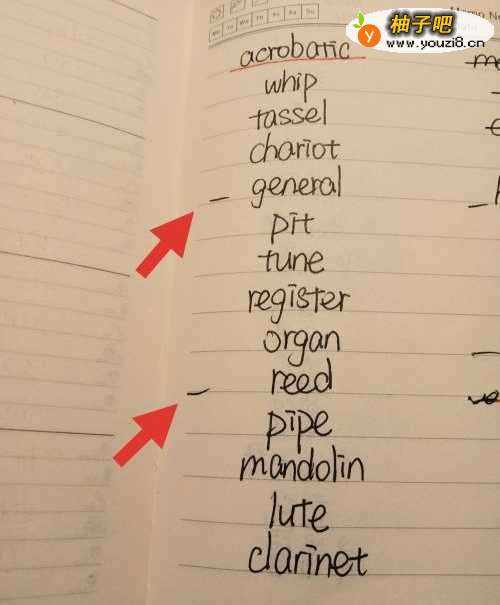 柚子吧
www.youzi8.cn
acrobatic
whip
tassel
chariot
general
pit
tune
register
organ
reed
pipe
mandolin
lute
clarinet